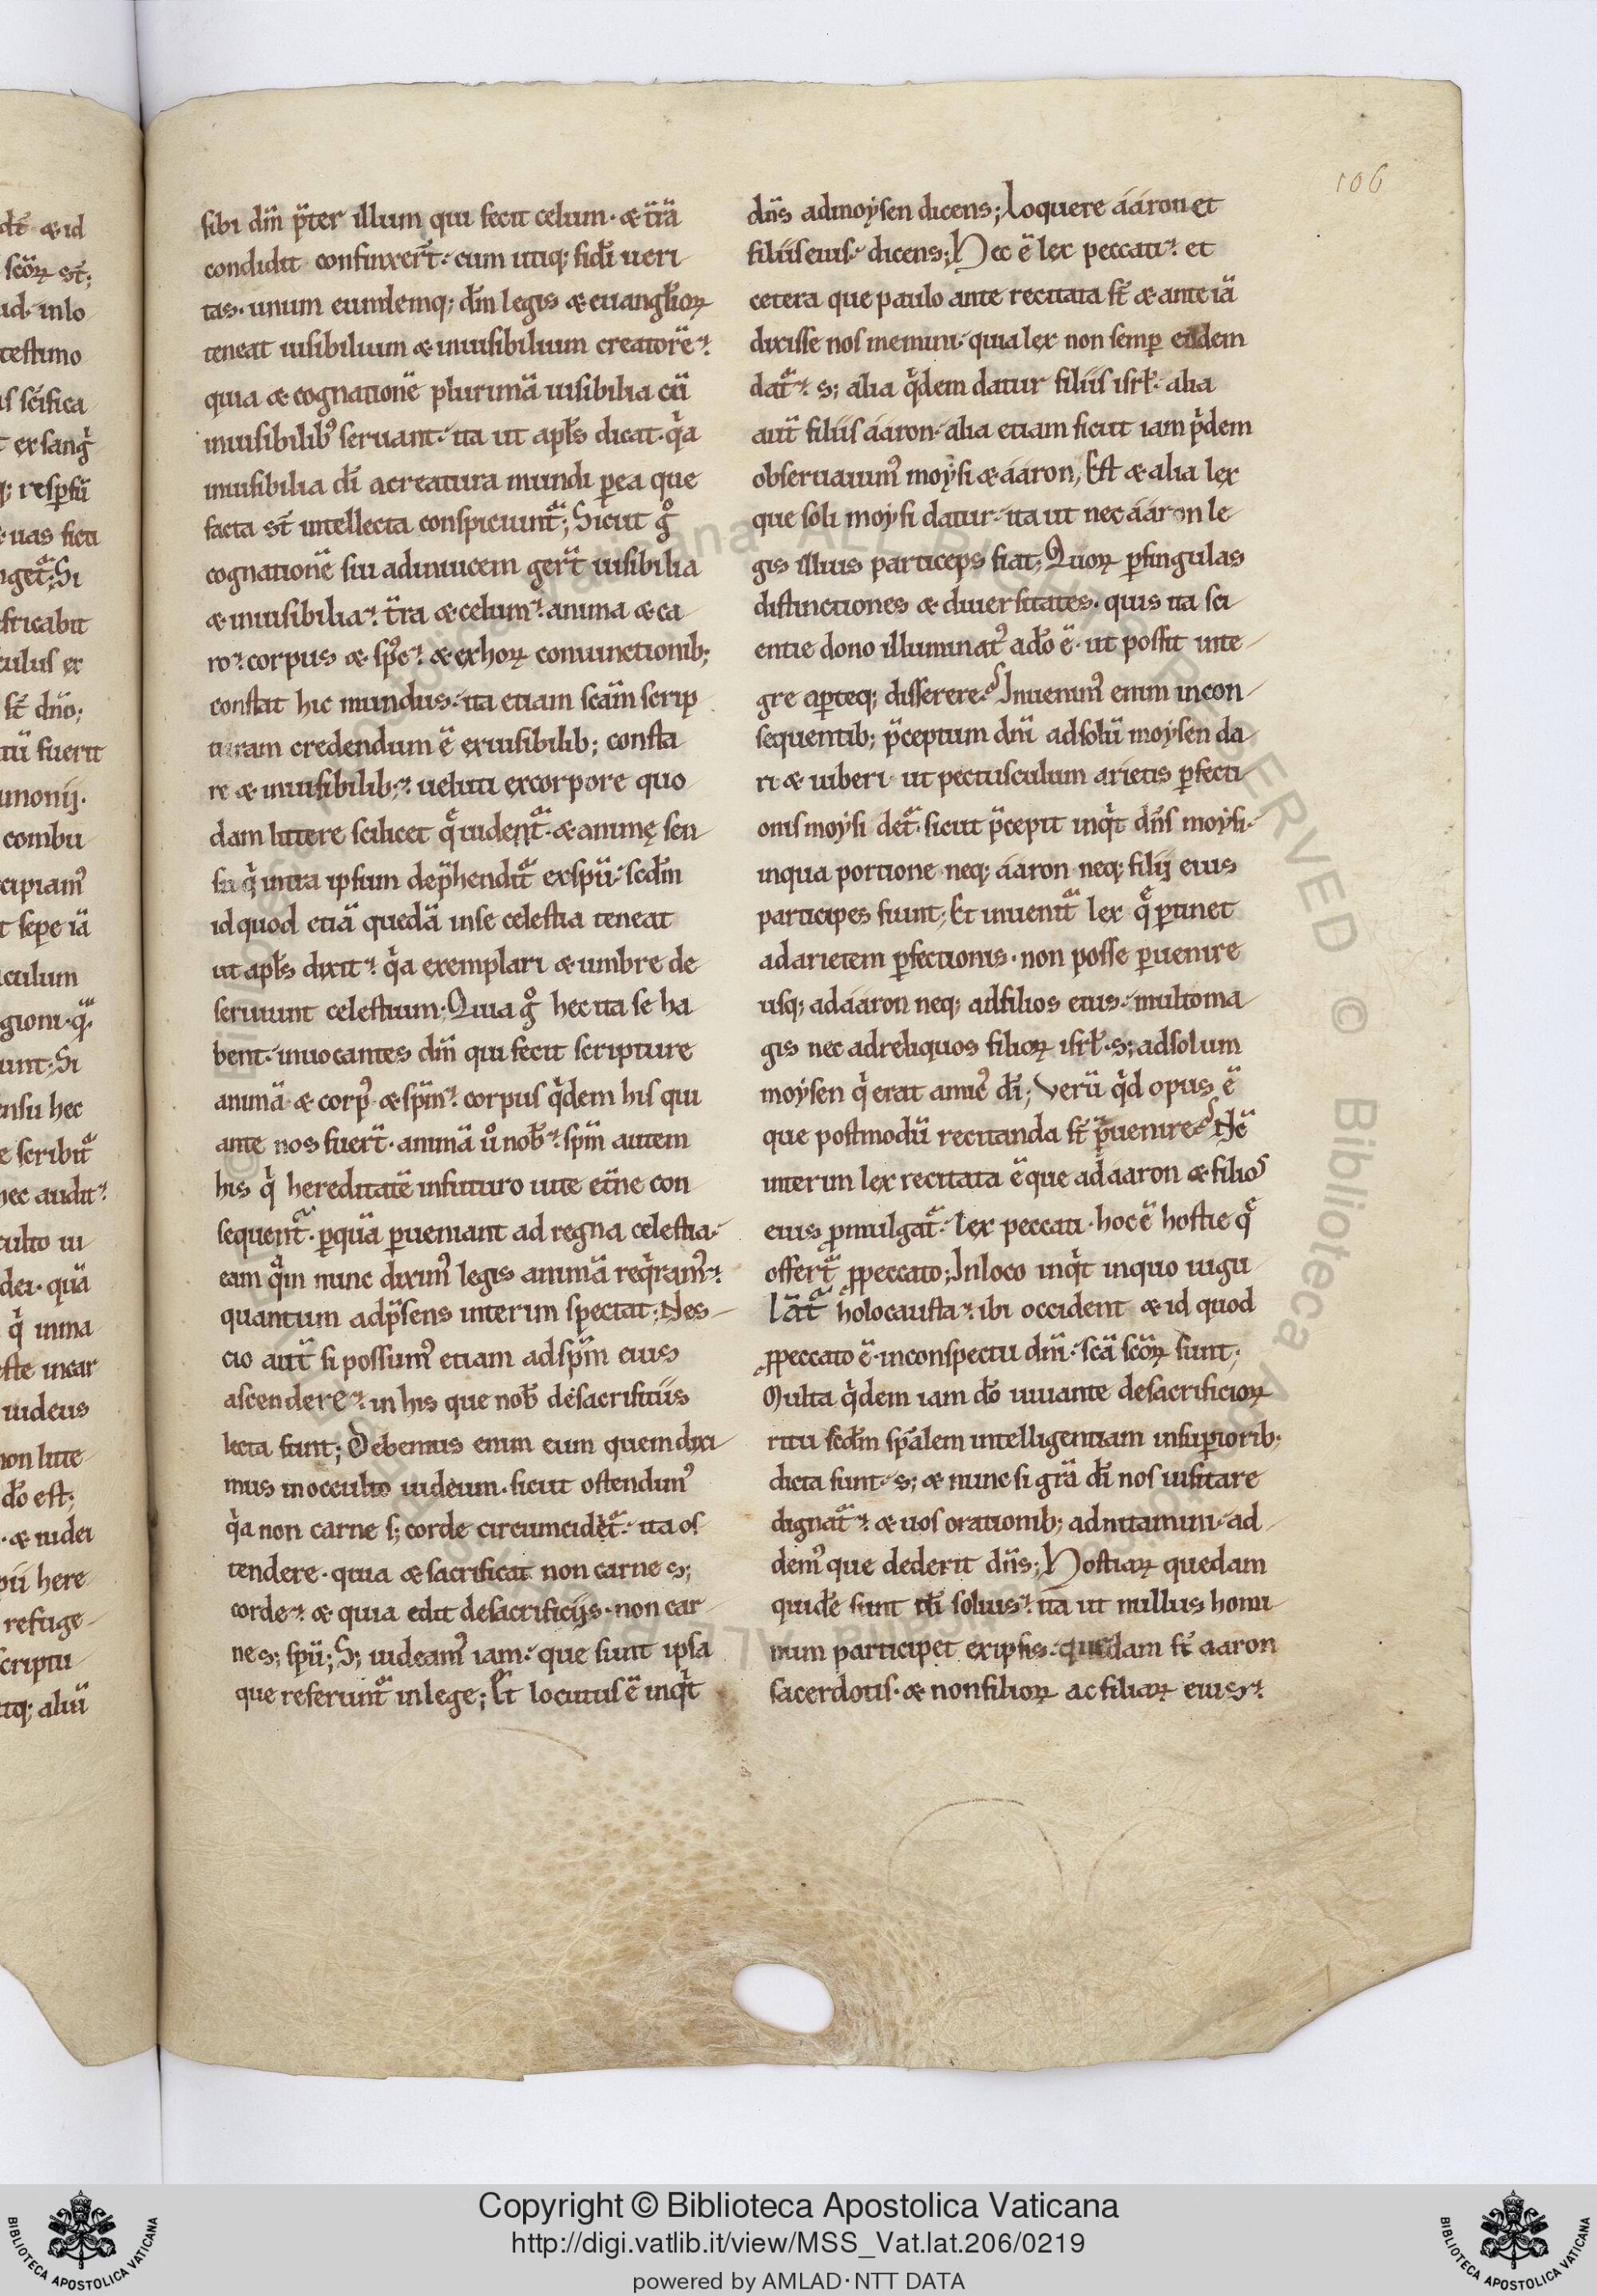 106
sibi dm̄ p̄ter illum qui fecit celum· & t̄rā
condidit confinxer̄t· cum utiq; fidi ueri
tas· unum eundemq; dm̄ legis & euangl̄ioꝝ
teneat uisibilium & inuisibilium creatorē·
quia & cognationē plurimā uisibilia cū
inuisibilib' seruant· ita ut apl̄s dicat· qa
inuisibilia dī acreatura mundi p ea que
facta st̄ intellecta conspiciunt᷑; Sicut gͦ
cognationē siu adinuicem ger̄t uisibilia
& inuisibilia· t̄ra & celum· anima & ca
ro· corpus & sp̄c· & exhoꝝ coniunctionib;
constat hic mundus· ita etiam scām scrip
turam credendum ē exuisibilib; consta
re & inuisibilib;· ueluti excorpore quo
dam littere scilicet q̄ uident᷑· & animę sen
su q intra ipsum dep̄hendit᷑ exspū· scdm̄
id quod etiā quedā inse celestia teneat
ut apl̄s dixit· qa exemplari & umbre de
seruiunt celestium; Quia gͦ hec ita se ha
bent· inuocantes dm̄ qui fecit scripture
animā & corp' & sp̄m· corpus qdem his qui
ante nos fuer̄t· animā uͦ nob̄· sp̄m autem
his q hereditatē infuturo uite et̄ne con
sequent᷑· p quā pueniant ad regna celestia·
eam q̄m nunc dixim' legis animā reqram'·
quantum adp̄sens interim spectat; Nes
cio aut̄ si possum' etiam adsp̄m eius
ascendere· in his que nob̄ desacrificiis
lecta sunt; Debemus enim eum quem dixi
mus inocculto iudeum· sicut ostendim'
qa non carne s; corde circumcidet᷑· ita os
tendere· quia & sacrificat non carne s;
corde· & quia edit desacrificijs· non car
ne s; spū; S; uideam' iam· que sunt ipsa
que referunt᷑ inlege; Et locutus ē inqt
dn̄s admoysen dicens; Loquere áaron et
filiis eius· dicens; Hec ē lex peccati· et
cetera que paulo ante recitata st̄ & ante iā
dixisse nos memini· quia lex non semp eadem
dat᷑· s; alia qdem datur filiis isrl̄· alia
aut̄ filiis áaron· alia etiam sicut iam pdem
obseruauim' moysi & áaron, Est & alia lex
que soli moysi datur· ita ut nec áaron le
gis illius particeps fiat; Quoꝝ psingulas
distinctiones & diuersitates· quis ita sci
entie dono illuminat' ado ē· ut possit inte
gre apteq; disserere? Inuenim' enim incon
sequentib; p̄ceptum dn̄i adsolū moysen da
ri & iuberi ut pectusculum arietis pfecti
onis moysi det᷑· sicut p̄cepit inqt dn̄s moysi·
inqua portione neq; áaron neq; filij eius
participes fiunt; Et inuenit᷑ lex q̄ ptinet
adarietem pfectionis· non posse puenire
usq; adáaron neq; adfilios eius· multoma
gis nec adreliquos filioꝝ isrl̄· s; adsolum
moysen q erat amic' dī; Verū qd opus ē
que postmodū recitanda st̄ p̄uenire? Nc̄
interim lex recitata ē que adaaron & filios
eius pmulgat᷑· lex peccati· hoc ē hostie q̄
offert᷑ ppeccato; Inloco inqt inquo iugu
lāt᷑ holocausta· ibi occident & id quod
ppeccato ē· inconspectu dn̄i· scā scōꝝ sunt;
Multa qdem iam do iuuante desacrificioꝝ
ritu scdm̄ sp̄alem intelligentiam insupiorib;
dicta sunt· s; & nunc si grā dī nos uisitare
dignat᷑· & uos orationib; adnitamini· ad
dem' que dederit dn̄s; Hostiaꝝ quedam
quidē sunt dī solius· ita ut nullus homi
num participet exipsis· quedam st̄ aaron
sacerdotis· & nonfilioꝝ ac filiaꝝ eius·
Copyright © Biblioteca Apostolica Vaticana
http://digi.vatlib.it/view/MSS_Vat.lat.206/0219
powered by AMLAD·NTT DATA
BIBLIOTECA APOSTOLICA VATICANA
BIBLIOTECA APOSTOLICA VATICANA